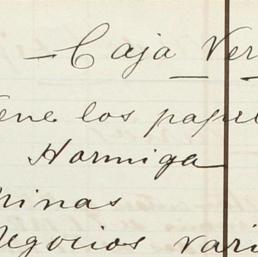 - Caja Ver
iene los pape
Hormiga
inas
Negocios vari